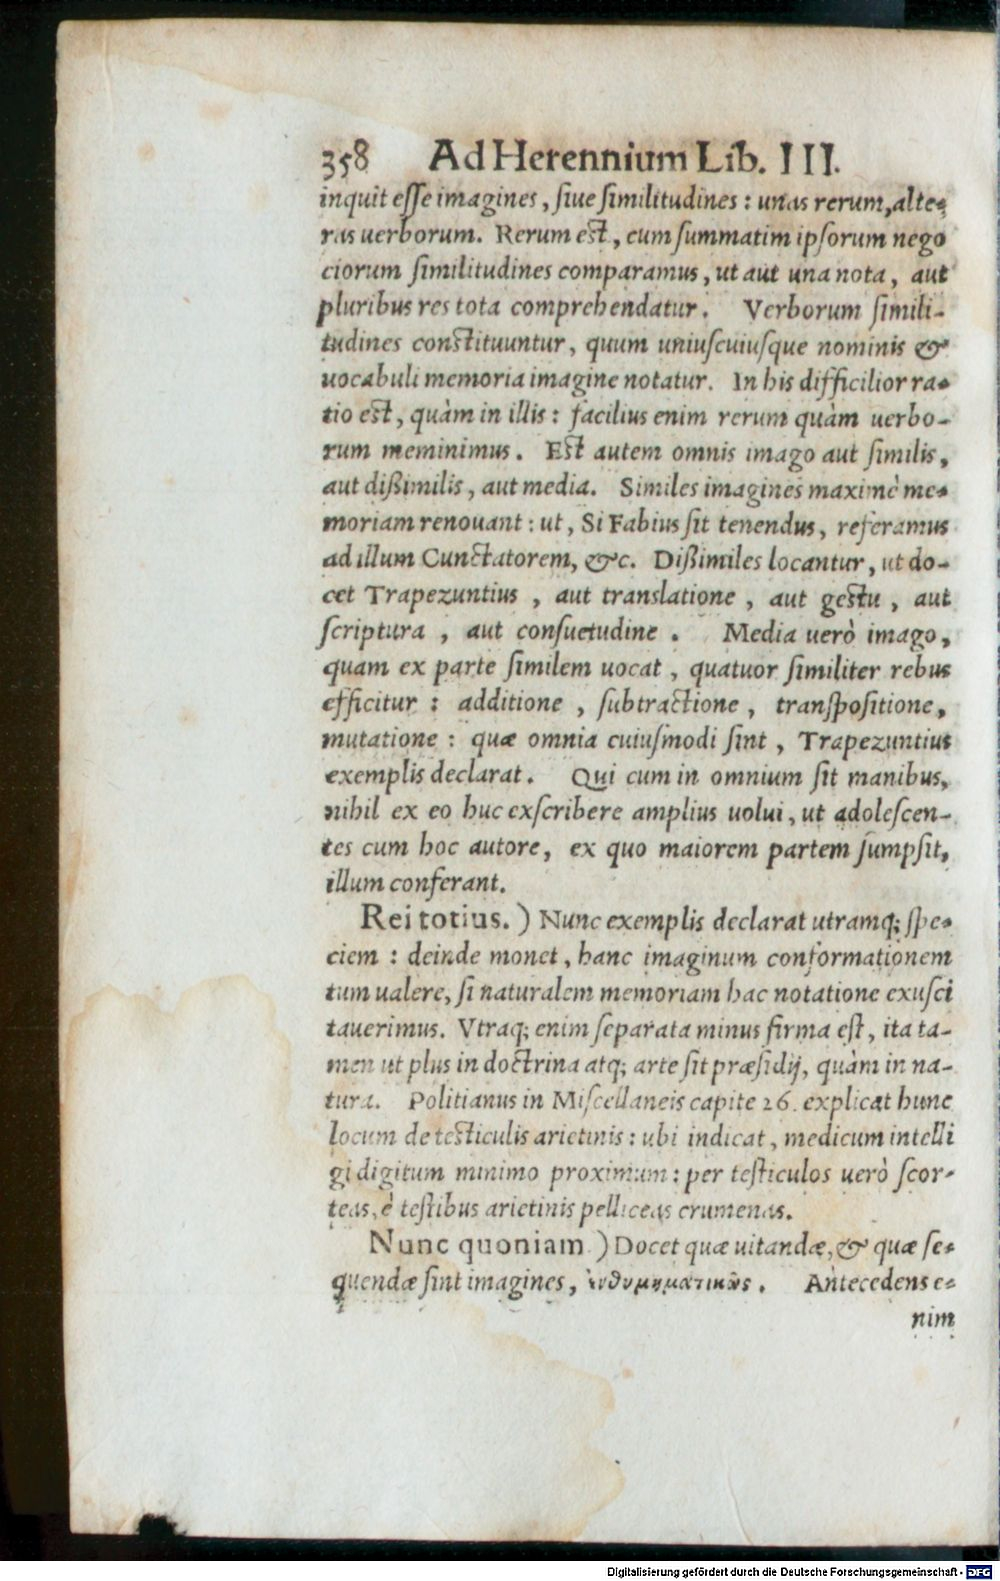 358 Ad Herennium Lib. III.
inquit esse imagines, siue similitudines: unas rerum, alte-
ras uerborum. Rerum est, cum summatim ipsorum nego
ciorum similitudines comparamus, ut aut una nota, aut
pluribus res tota comprehendatur. Verborum simili-
tudines constituuntur, quum uniuscuiusque nominis &
uocabuli memoria imagine notatur. In his difficilior ra-
tio est, quàm in illis: facilius enim rerum quàm uerbo-
rum meminimus. Est autem omnis imago aut similis,
aut dißimilis, aut media. Similes imagines maximè me-
moriam renouant: ut, Si Fabius sit tenendus, referamus
ad illum Cunctatorem, &c. Dißimiles locantur, ut do-
cet Trapezuntius, aut translatione, aut gestu, aut
scriptura, aut consuetudine. Media uerò imago,
quam ex parte similem uocat, quatuor similiter rebus
efficitur: additione, subtractione, transpositione,
mutatione: quæ omnia cuiusmodi sint, Trapezuntius
exemplis declarat. Qui cum in omnium sit manibus,
nihil ex eo huc exscribere amplius uolui, ut adolescen-
tes cum hoc autore, ex quo maiorem partem sumpsit,
illum conferant.
Rei totius.) Nunc exemplis declarat utramq; spe-
ciem: deinde monet, hanc imaginum conformationem
tum ualere, si naturalem memoriam hac notatione exusci
tauerimus. Vtraq; enim separata minus firma est, ita ta-
men ut plus in doctrina atq; arte sit præsidij, quàm in na-
tura. Politianus in Miscellaneis capite 26. explicat hunc
locum de testiculis arietinis: ubi indicat, medicum intelli
gi digitum minimo proximum: per testiculos uerò scor-
teas, è testibus arietinis pelliceas crumenas.
Nunc quoniam.) Docet quæ uitandæ, & quæ se-
quendæ sint imagines, ἐνθυμηματικῶς. Antecedens e-
nim
Digitalisierung gefördert durch die Deutsche Forschungsgemeinschaft - DFG